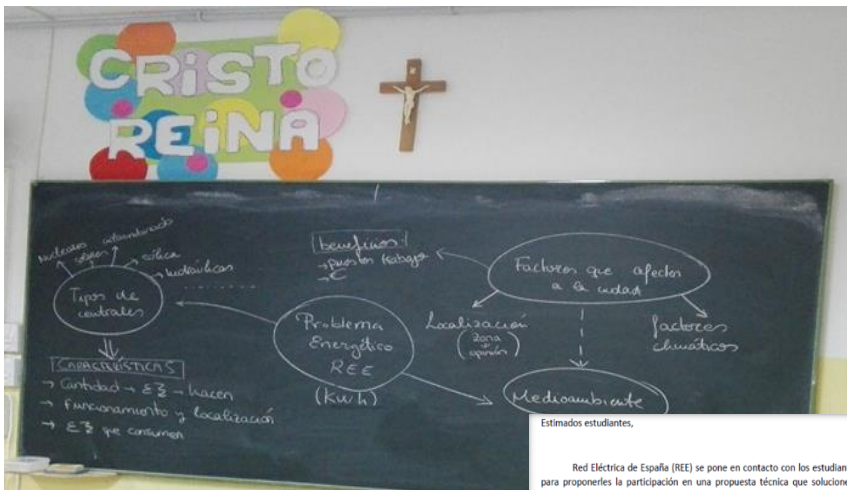 CRISTO
REINA
Nucleares
solares
eólica
hidráulicas
Tipos de
centrales
CARACTERÍSTICAS
→ Cantidad → → hacen
→ Funcionamiento y localización
→ que consumen
beneficios
→ puestos trabajo
→ €
Problema
Energético
REE
(Kwh)
Factores que afectan
a la ciudad
Localización
(zona
opinión)
factores
climáticos
Medioambiente
Estimados estudiantes,
Red Eléctrica de España (REE) se pone en contacto con los estudian
para proponerles la participación en una propuesta técnica que solucione